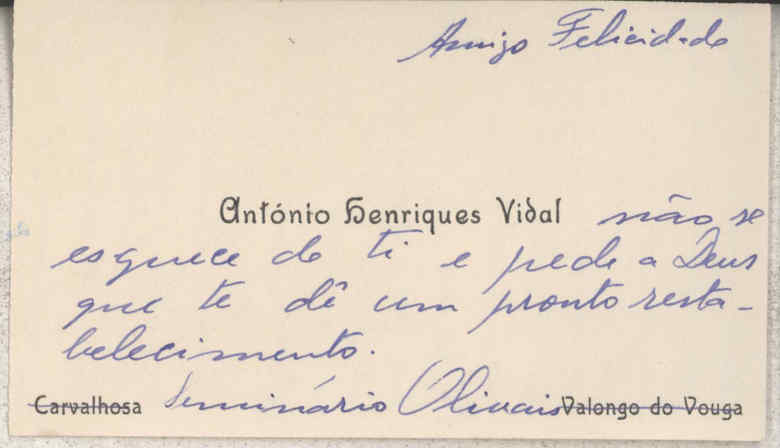 Amigo Felicidade
António Henriques Vidal não se
esquece de ti e pede a Deus
que te dê um pronto resta-
belecimento.
Carvalhosa Seminário Olivais Valongo do Vouga